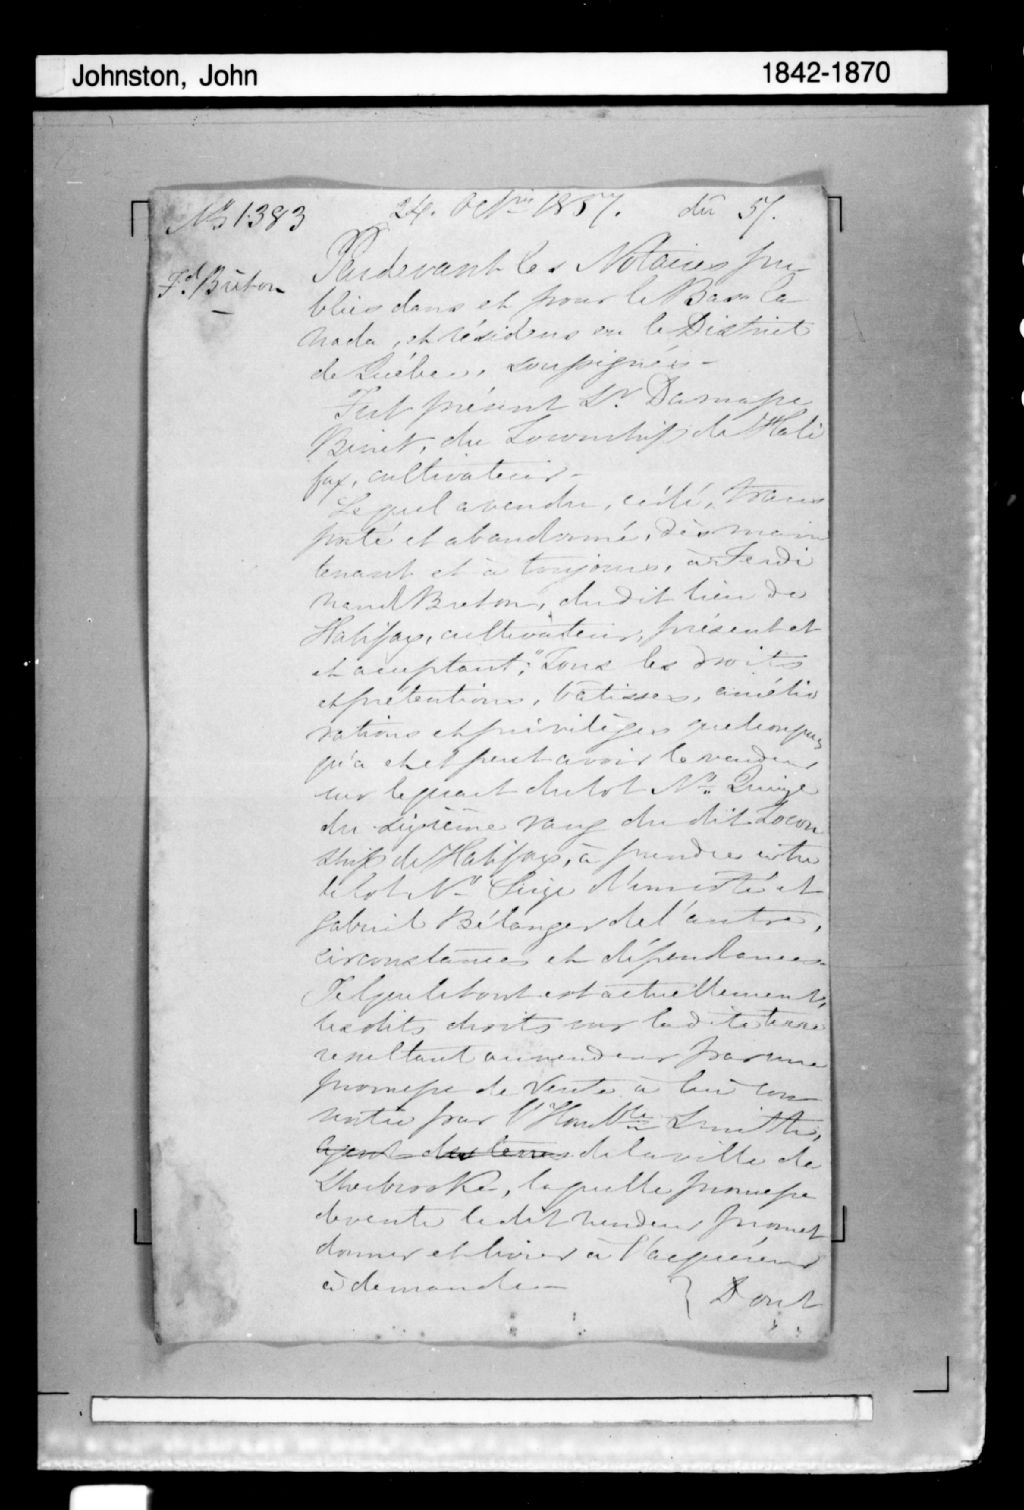 Johnston, John 1842-1870
No 1383 24. Octbre 1857. du 57.
Fd Breton
Pardevant les Notaires pu-
blics dans et pour le Bas Ca
nada, et résidens en le District
de Québec, soussignés -
Fut présent Sr. Damase
Binet, du Township de Hali
fax, cultivateur -
Lequel a vendu, cédé, trans
porté et abandonné, dès main
tenant et à toujours, à Ferdi
nand Breton, du dit lieu de
Halifax, cultivateur, présent et
et acceptant; Tous les droits
et prétentions, bâtisses, amélio
rations et privilèges quelconques
qu'a et et peut avoir le vendeur
sur le quart du lot No. Quinze
du sixième rang du dit Town
ship de Halifax, à prendre entre
le lot No. Seize d'un côté et
Gabriel Bélanger de l'autre,
circonstances et dépendances
Tel que le tout est actuellement,
les dits droits sur la dite terre
resultant au vendeur par une
promesse de vente à lui con
sentie par l'Honble Smith,
agent des terres de la ville de
Sherbrooke, laquelle promesse
de vente le dit vendeur promet
donner et livrer à l'acquéreur
à demande -
Dont